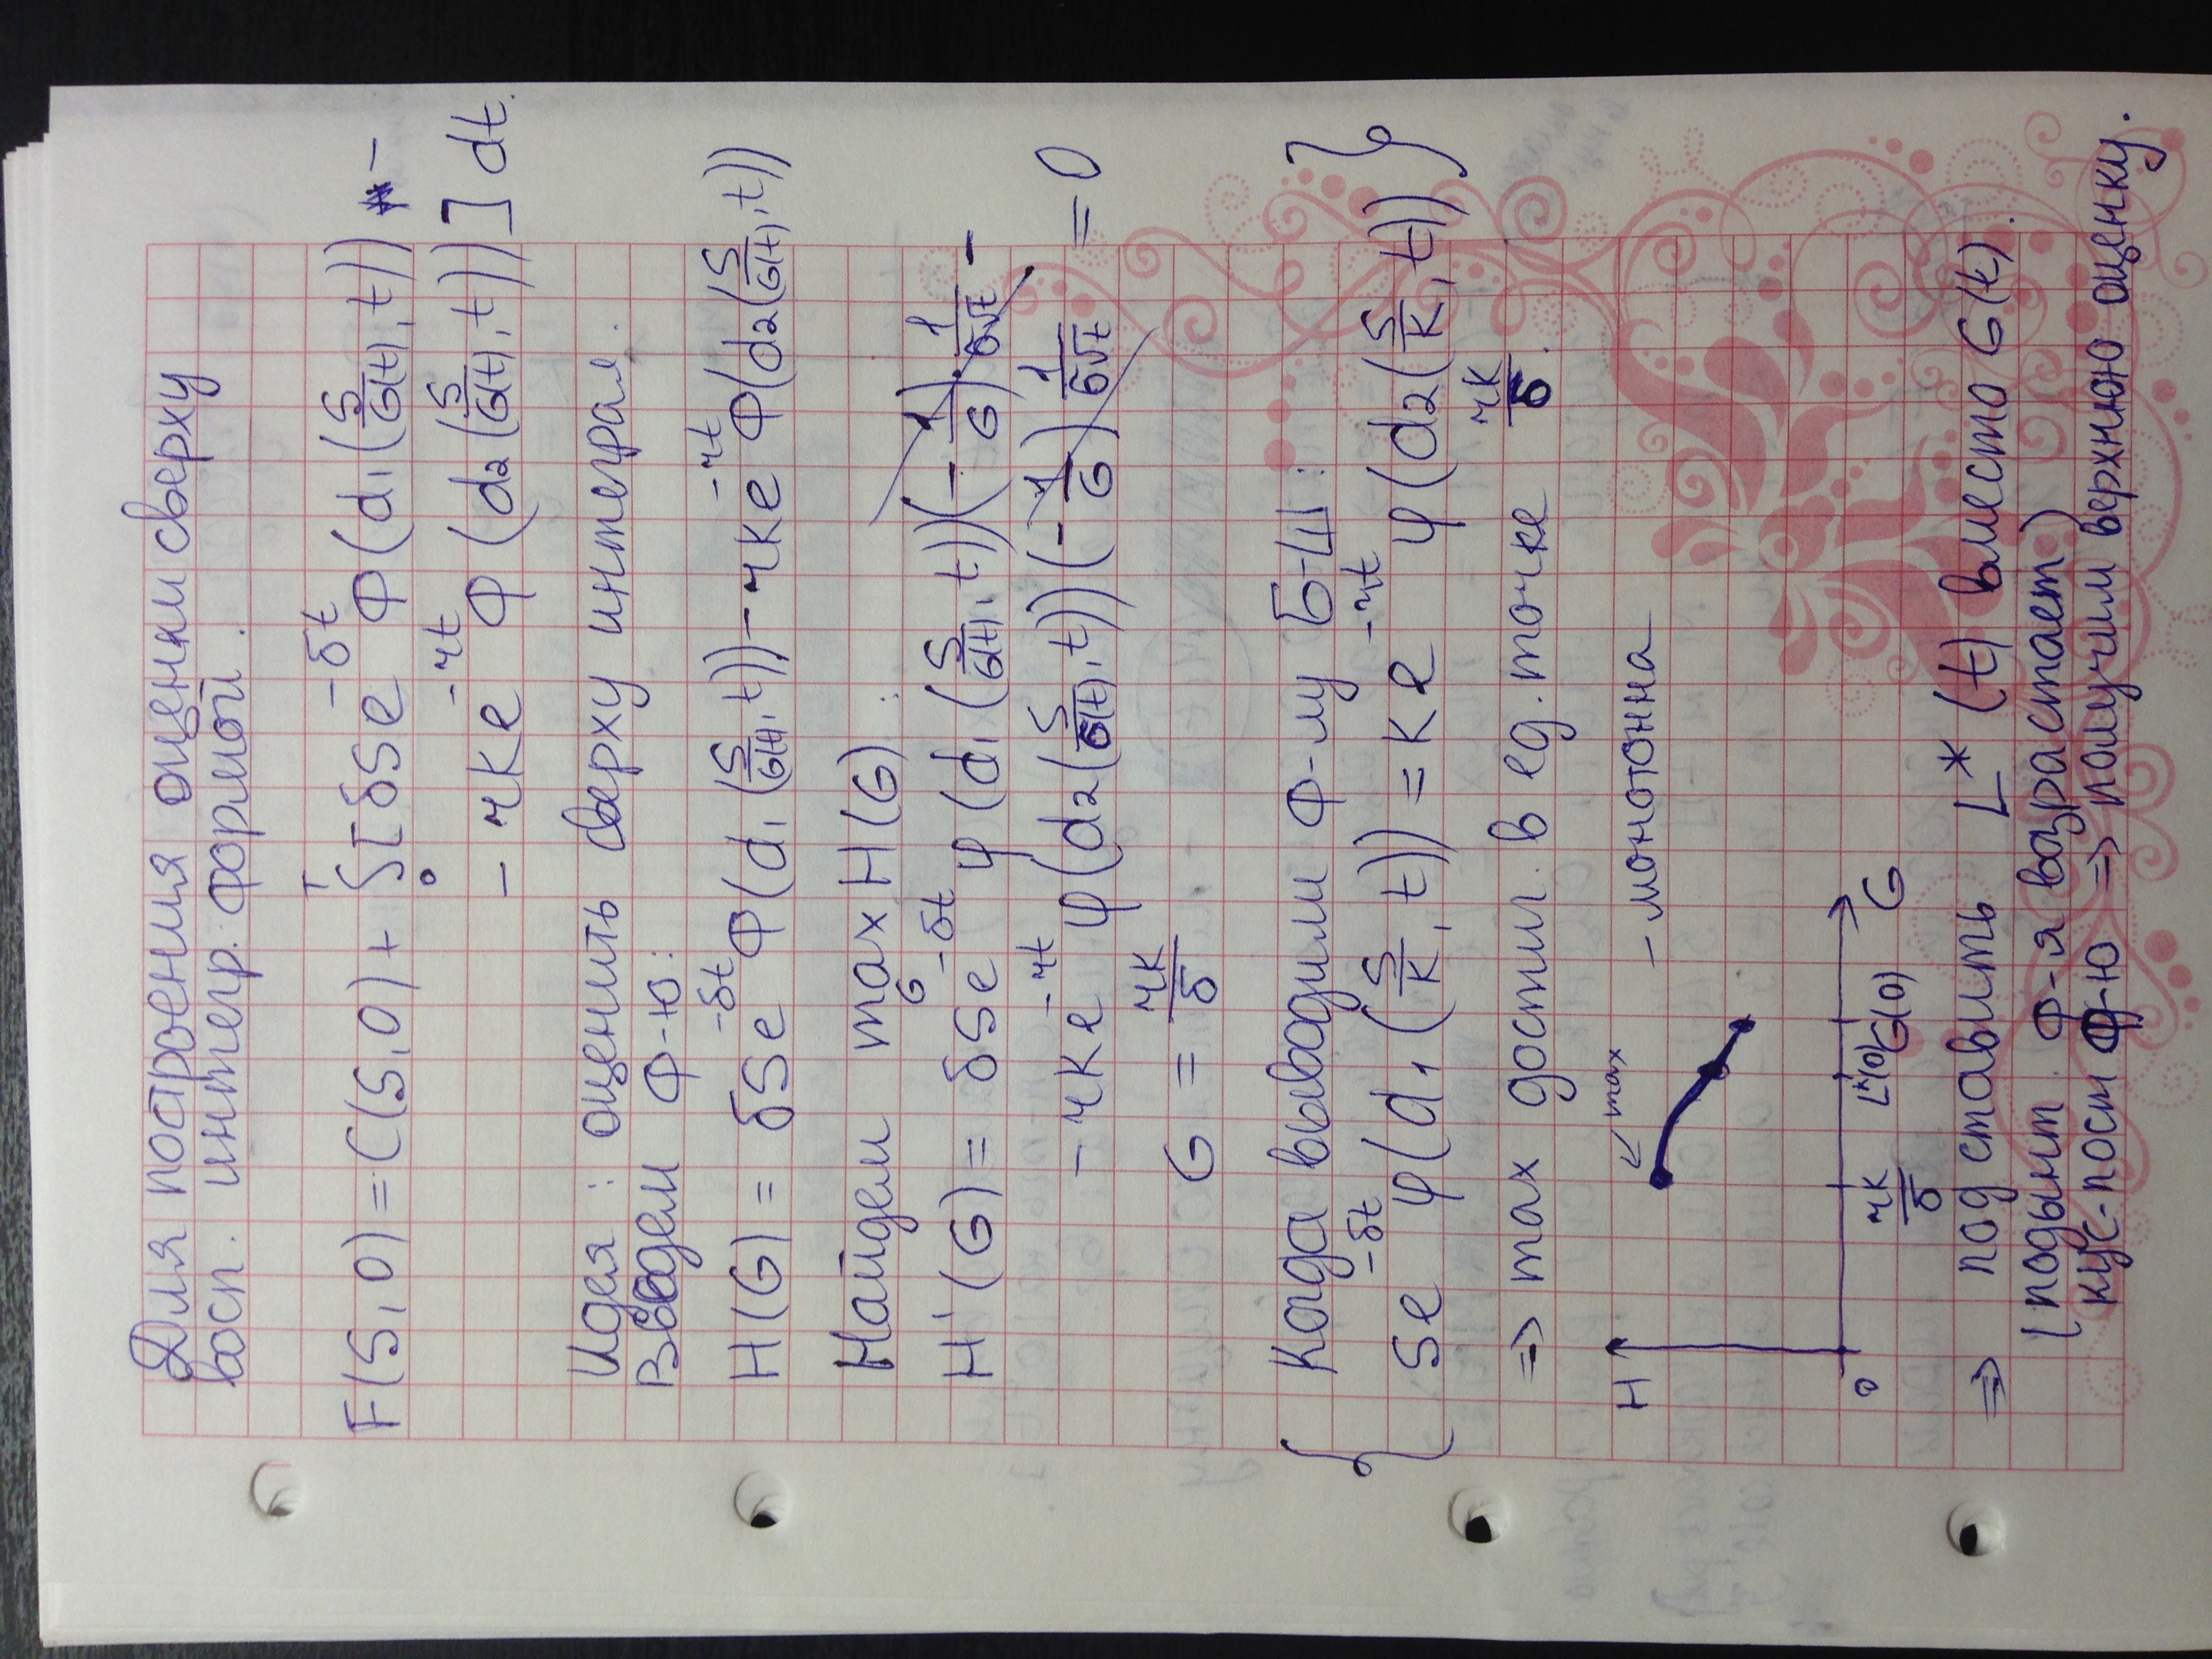 Для построения оценки сверху
восп. интегр. формой.
F(S,0) = C(S,0) + ∫₀ᵀ [δSe^{-δt} Φ(d₁(S/G(t), t)) −
− rKe^{-rt} Φ(d₂(S/G(t), t))] dt.
Идея: оценить сверху интеграл.
Введем ф-ю:
H(G) = δSe^{-δt} Φ(d₁(S/G(t), t)) − rKe^{-rt} Φ(d₂(S/G(t), t))
Найдем max_G H(G):
H'(G) = δSe^{-δt} φ(d₁(S/G(t), t)) (−1/G) · 1/(σ√t) −
− rKe^{-rt} φ(d₂(S/G(t), t)) (−1/G) 1/(σ√t) = 0
G = rK/δ
{ Когда выводили ф-лу Б-Ш:
Se^{-δt} φ(d₁(S/K, t)) = Ke^{-rt} φ(d₂(S/K, t)) }
=> max достиг. в ед. точке rK/δ.
H max − монотонна
0 rK/δ L*(0) G(0) G
=> подставить L*(t) вместо G(t).
[подынт. ф-я возрастает)
кус-пост ф-ю => получим верхнюю оценку.